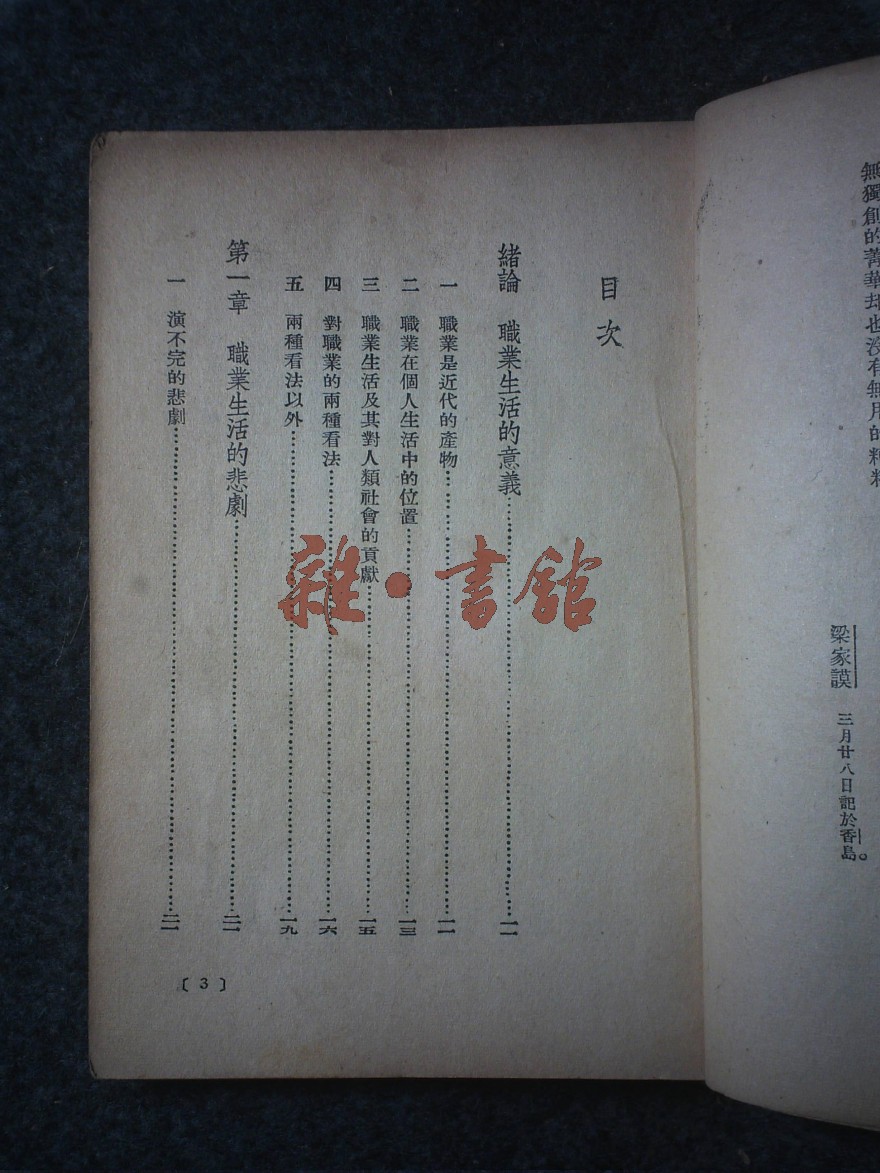 無獨創的菁華却也沒有無用的糟粕
梁家謨 三月廿八日記於香島。
目次
緒論 職業生活的意義……一一
一 職業是近代的產物……一一
二 職業在個人生活中的位置……一三
三 職業生活及其對人類社會的貢獻……一五
四 對職業的兩種看法……一六
五 兩種看法以外……一九
第一章 職業生活的悲劇……二一
一 演不完的悲劇……二一
〔3〕
雜·書館